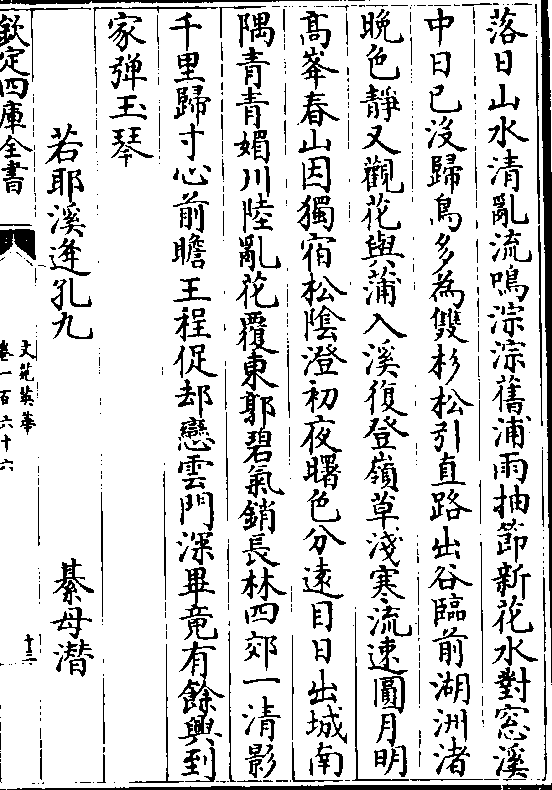 落日山水清亂流鳴淙淙舊浦雨抽節新花水對窓溪
中日已沒歸鳥多為雙杉松引直路出谷臨前湖洲渚
晚色靜又觀花與蒲入溪復登嶺草淺寒流速圓月明
高峯春山因獨宿松陰澄初夜曙色分遠目日出城南
隅青青媚川陸亂花覆東郭碧氣銷長林四郊一清影
千里歸寸心前瞻王程促却戀雲門深畢竟有餘興到
家彈玉琴
若耶溪逢孔九 綦毋潛
欽定四庫全書
文苑英華
卷一百六十六
十三